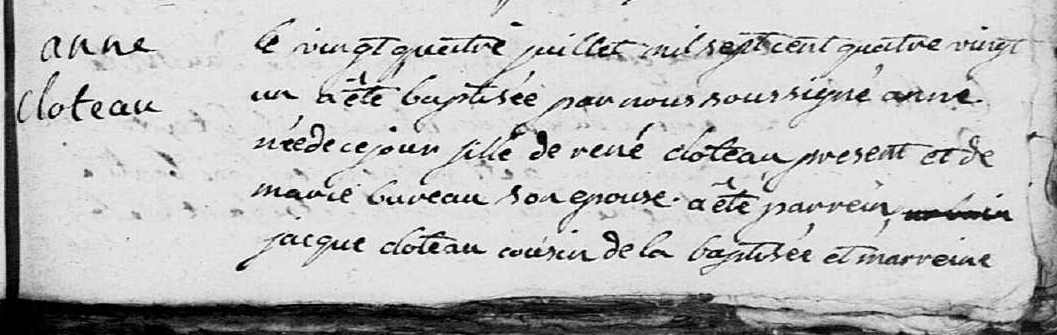 anne
cloteau
le vingt quatre juillet mil sept cent quatre vingt
un a été baptisée par nous soussigné anne
née de ce jour fille de rené cloteau present et de
marie bureau son epouse. a été parrein
jacque cloteau cousin de la baptisée et marreine